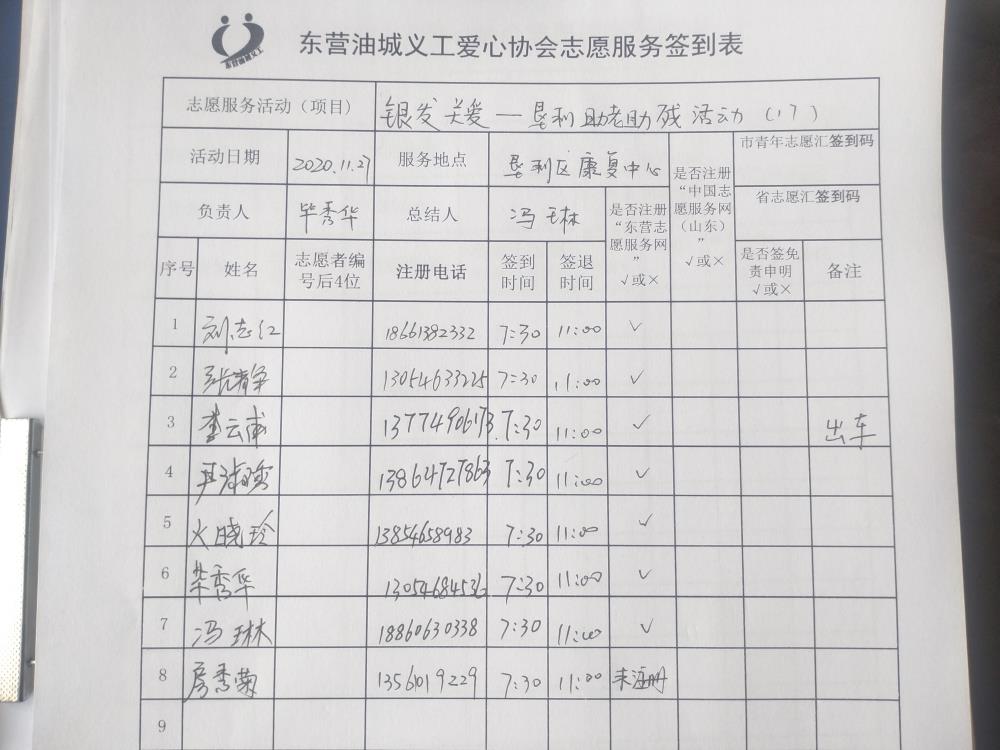 东营油城义工
东营油城义工爱心协会志愿服务签到表
志愿服务活动（项目） 银发关爱—垦利助老助残活动（17）
活动日期 2020.11.27 服务地点 垦利区康复中心 是否注册“中国志愿服务网（山东）” √或× 市青年志愿汇签到码
负责人 毕秀华 总结人 冯琳 是否注册“东营志愿服务网” √或× 省志愿汇签到码
序号 姓名 志愿者编号后4位 注册电话 签到时间 签退时间 是否签免责申明 √或× 备注
1 刘志红 18661382332 7:30 11:00 √
2 张清军 13054633225 7:30 11:00 √
3 李云甫 13774906173 7:30 11:00 √ 出车
4 13864727863 7:30 11:00 √
5 火晓玲 13854658983 7:30 11:00 √
6 毕秀华 13054684536 7:30 11:00 √
7 冯琳 18860630338 7:30 11:00 √
8 房秀菊 13561019229 7:30 11:00 未注册
9